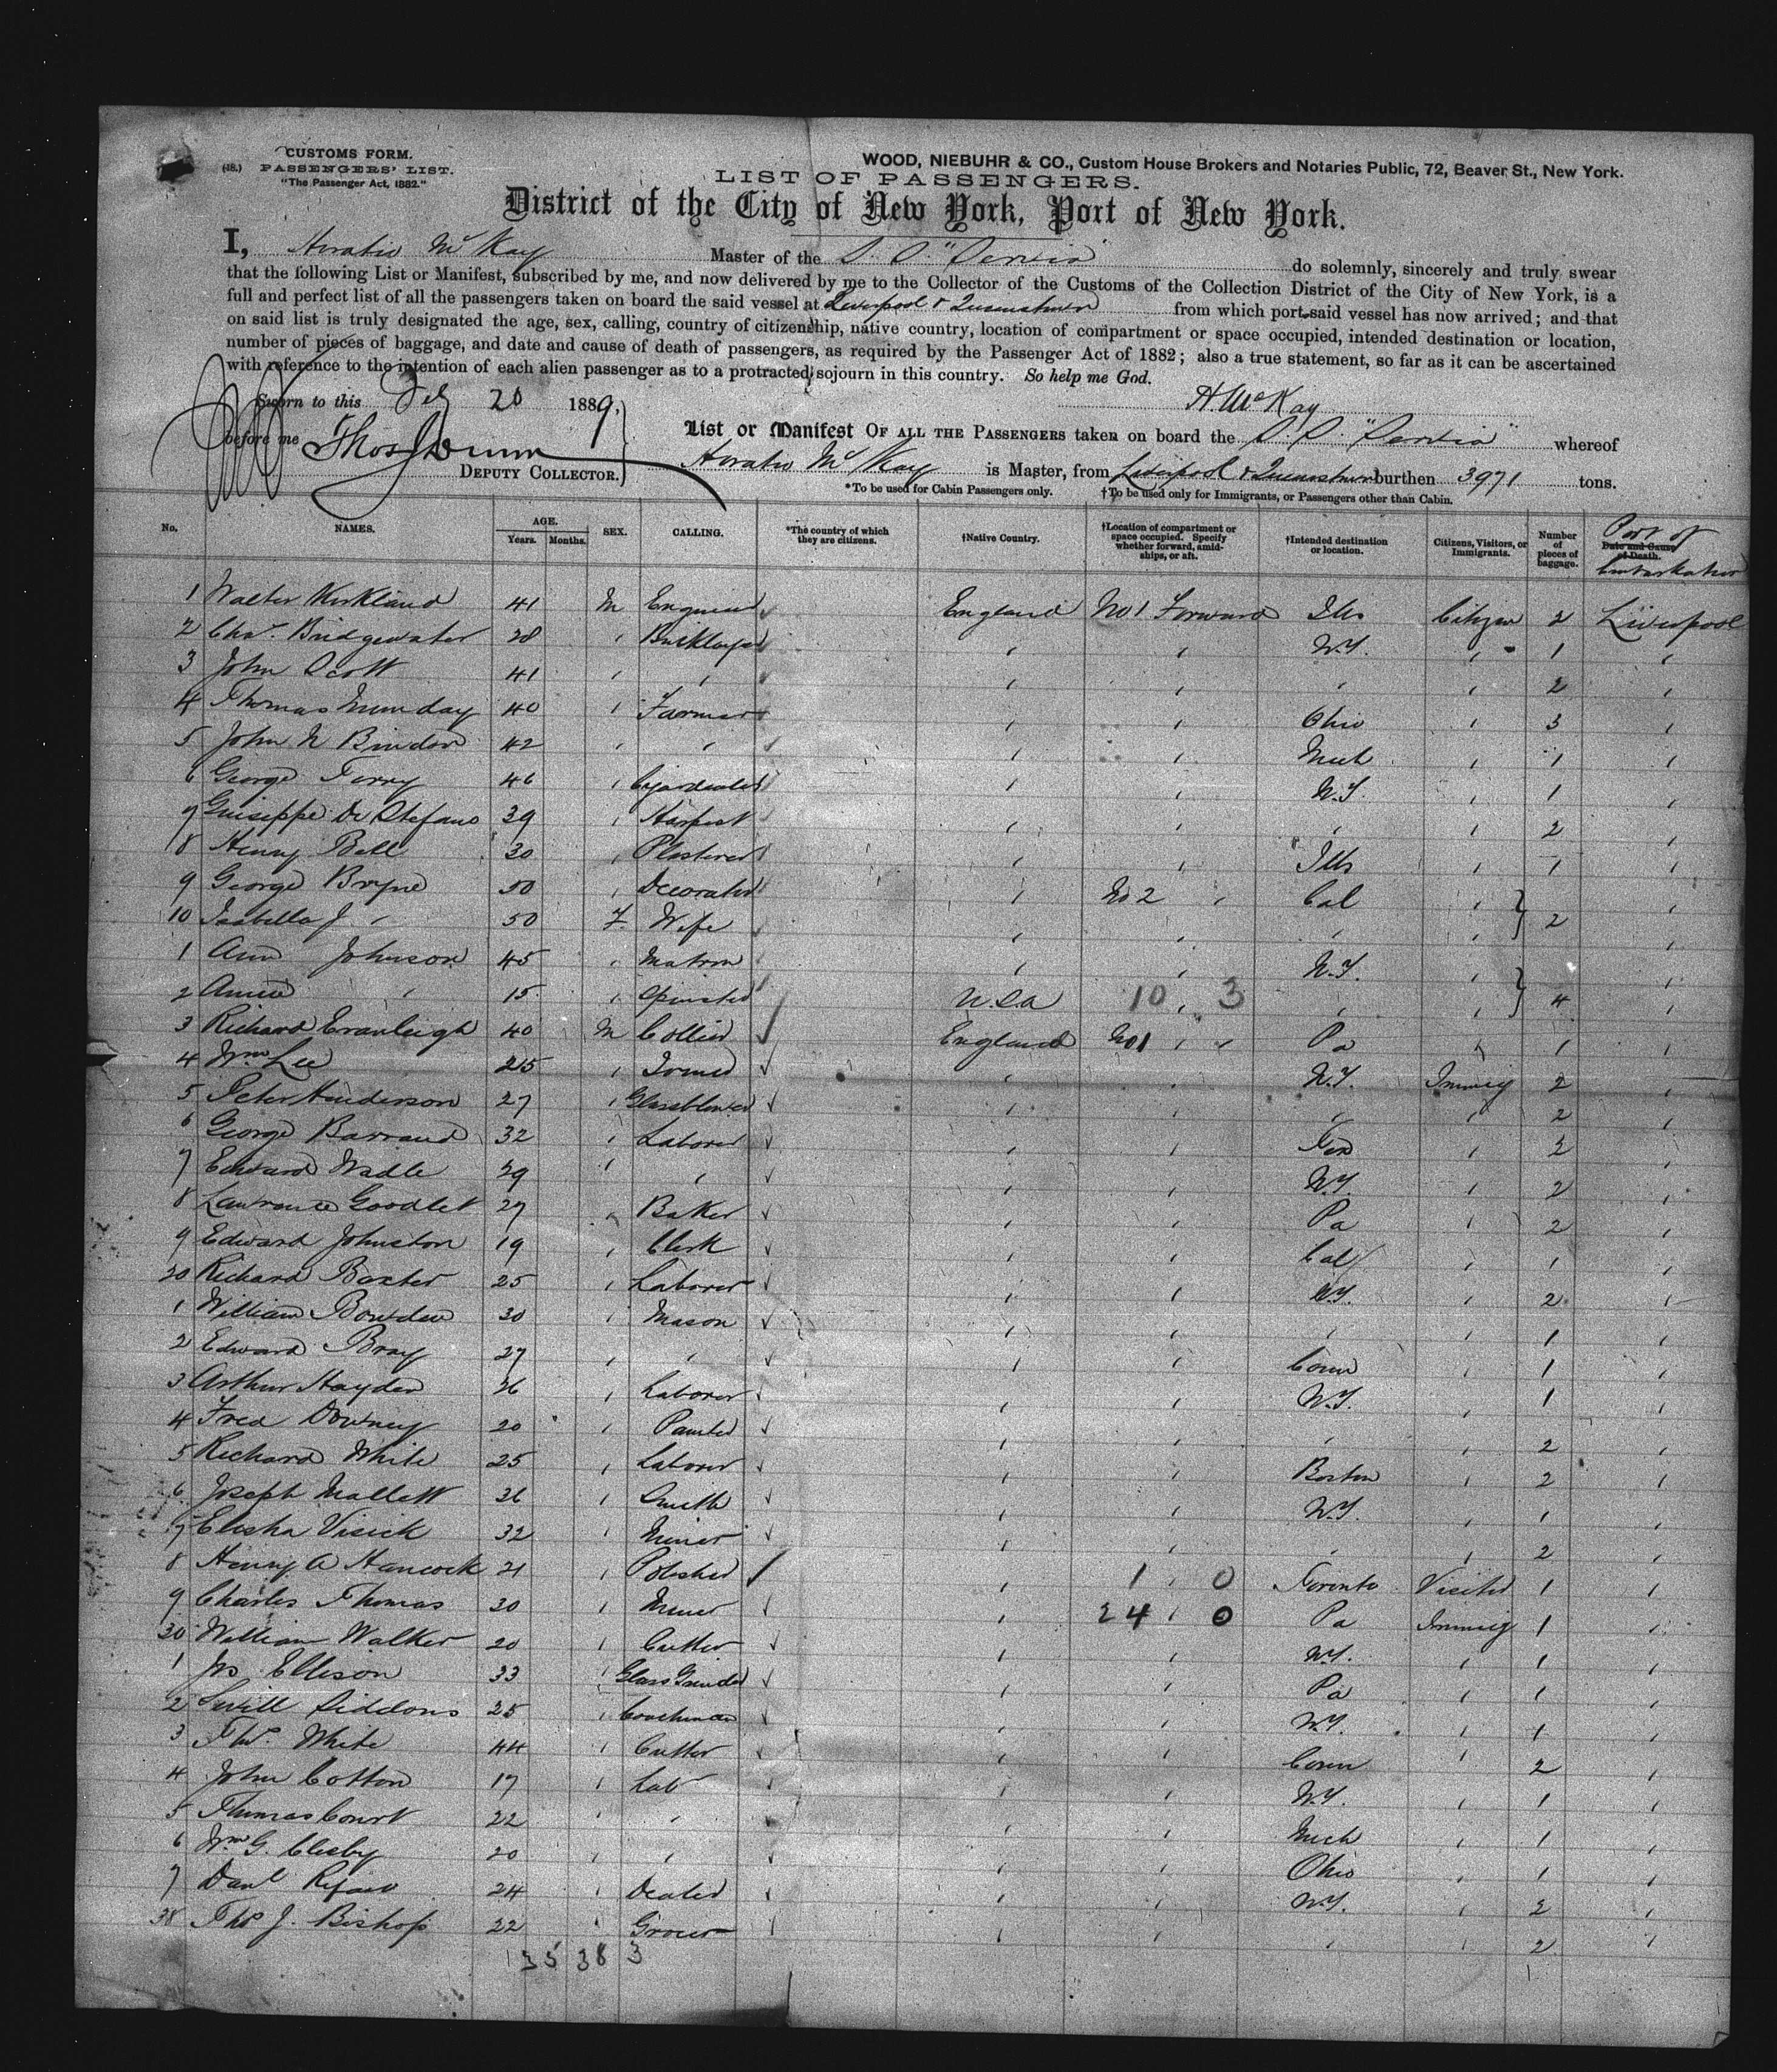 CUSTOMS FORM.
(18.) PASSENGERS' LIST.
"The Passenger Act, 1882."
WOOD, NIEBUHR & CO., Custom House Brokers and Notaries Public, 72, Beaver St., New York.
LIST OF PASSENGERS.
District of the City of New York, Port of New York.
I, Horatio McKay Master of the S. S. "Servia" do solemnly, sincerely and truly swear
that the following List or Manifest, subscribed by me, and now delivered by me to the Collector of the Customs of the Collection District of the City of New York, is a
full and perfect list of all the passengers taken on board the said vessel at Liverpool & Queenstown from which port said vessel has now arrived; and that
on said list is truly designated the age, sex, calling, country of citizenship, native country, location of compartment or space occupied, intended destination or location,
number of pieces of baggage, and date and cause of death of passengers, as required by the Passenger Act of 1882; also a true statement, so far as it can be ascertained
with reference to the intention of each alien passenger as to a protracted sojourn in this country. So help me God.
Sworn to this Feb 20 1889,
H. McKay
before me Thos Dunn
DEPUTY COLLECTOR.
List or Manifest OF ALL THE PASSENGERS taken on board the S. S. "Servia" whereof
Horatio McKay is Master, from Liverpool & Queenstown burthen 3971 tons.
*To be used for Cabin Passengers only. †To be used only for Immigrants, or Passengers other than Cabin.
No. NAMES. AGE. Years. Months. SEX. CALLING. *The country of which they are citizens. †Native Country. †Location of compartment or space occupied. Specify whether forward, amidships, or aft. †Intended destination or location. Citizens, Visitors, or Immigrants. Number of pieces of baggage. Date and Cause of Death. Port of Embarkation
1 Walter Kirkland 41 M Engineer England No 1 Forward Ills Citizen 2 Liverpool
2 Chas. Bridgewater 28 " Bricklayer " " N.Y. " 1 "
3 John Scott 41 " " " " " " 2 "
4 Thomas Munday 40 " Farmer " " Ohio " 3 "
5 John N 42 " " " " Mich " 1 "
6 George Terry 46 " " " N.Y. " 1 "
7 Guiseppe De Stefano 39 " Harpist " " " " 2 "
8 Henry Bell 30 " Plasterer " " Ills " 1 "
9 George Bryne 50 " Decorator " No 2 " Cal " "
10 Isabella J " 50 F. Wife " " " " 2 "
1 Ann Johnson 45 " Matron " " N.Y. " "
2 Annie " 15 " Spinster U.S.A 10 " 3 " " 4 "
3 Richard Cranleigh 40 M Collier England No 1 " " Pa " 1 "
4 Wm Lee 25 " " " N.Y. Immig 2 "
5 Peter Henderson 27 " Glassblower " " " " 2 "
6 George Barrand 32 " Laborer " " " 2 "
7 Edward Wadle 29 " " " " N.Y. " 2 "
8 Lawrence Goodlet 27 " Baker " " Pa " 2 "
9 Edward Johnston 19 " Clerk " " Cal " 1 "
20 Richard Baxter 25 " Laborer " " N.Y. " 2 "
1 William Bowden 30 " Mason " " " " 1 "
2 Edward Bray 27 " " " " Conn " 1 "
3 Arthur Hayden 26 " Laborer " " N.Y. " 1 "
4 Fred Downey 20 " Painter " " " " 2 "
5 Richard White 25 " Laborer " " Boston " 2 "
6 Joseph Mallett 26 " Smith " " N.Y. " 1 "
7 Elisha Visick 32 " Miner " " " " 2 "
8 Henry A Hancock 21 " Polisher " 1 " 0 Toronto Visitor 1 "
9 Charles Thomas 30 " Miner " 24 " 0 Pa Immig 1 "
30 William Walker 20 " Cutter " " N.Y. " 1 "
1 Jno Ellison 33 " Glass Grinder " " Pa " 1 "
2 Siddons 25 " Coachman " " N.Y. " 1 "
3 Thos. White 44 " Cutter " " Conn " 2 "
4 John Cotton 17 " Lab " " N.Y. " 1 "
5 Thomas Court 22 " " " " Mich " 1 "
6 Wm G. Clesby 20 " " " " Ohio " 1 "
7 Danl 24 " Dealer " " N.Y. " 2 "
38 Thos J. Bishop 22 " Grocer " " " " 2 "
35 38 3